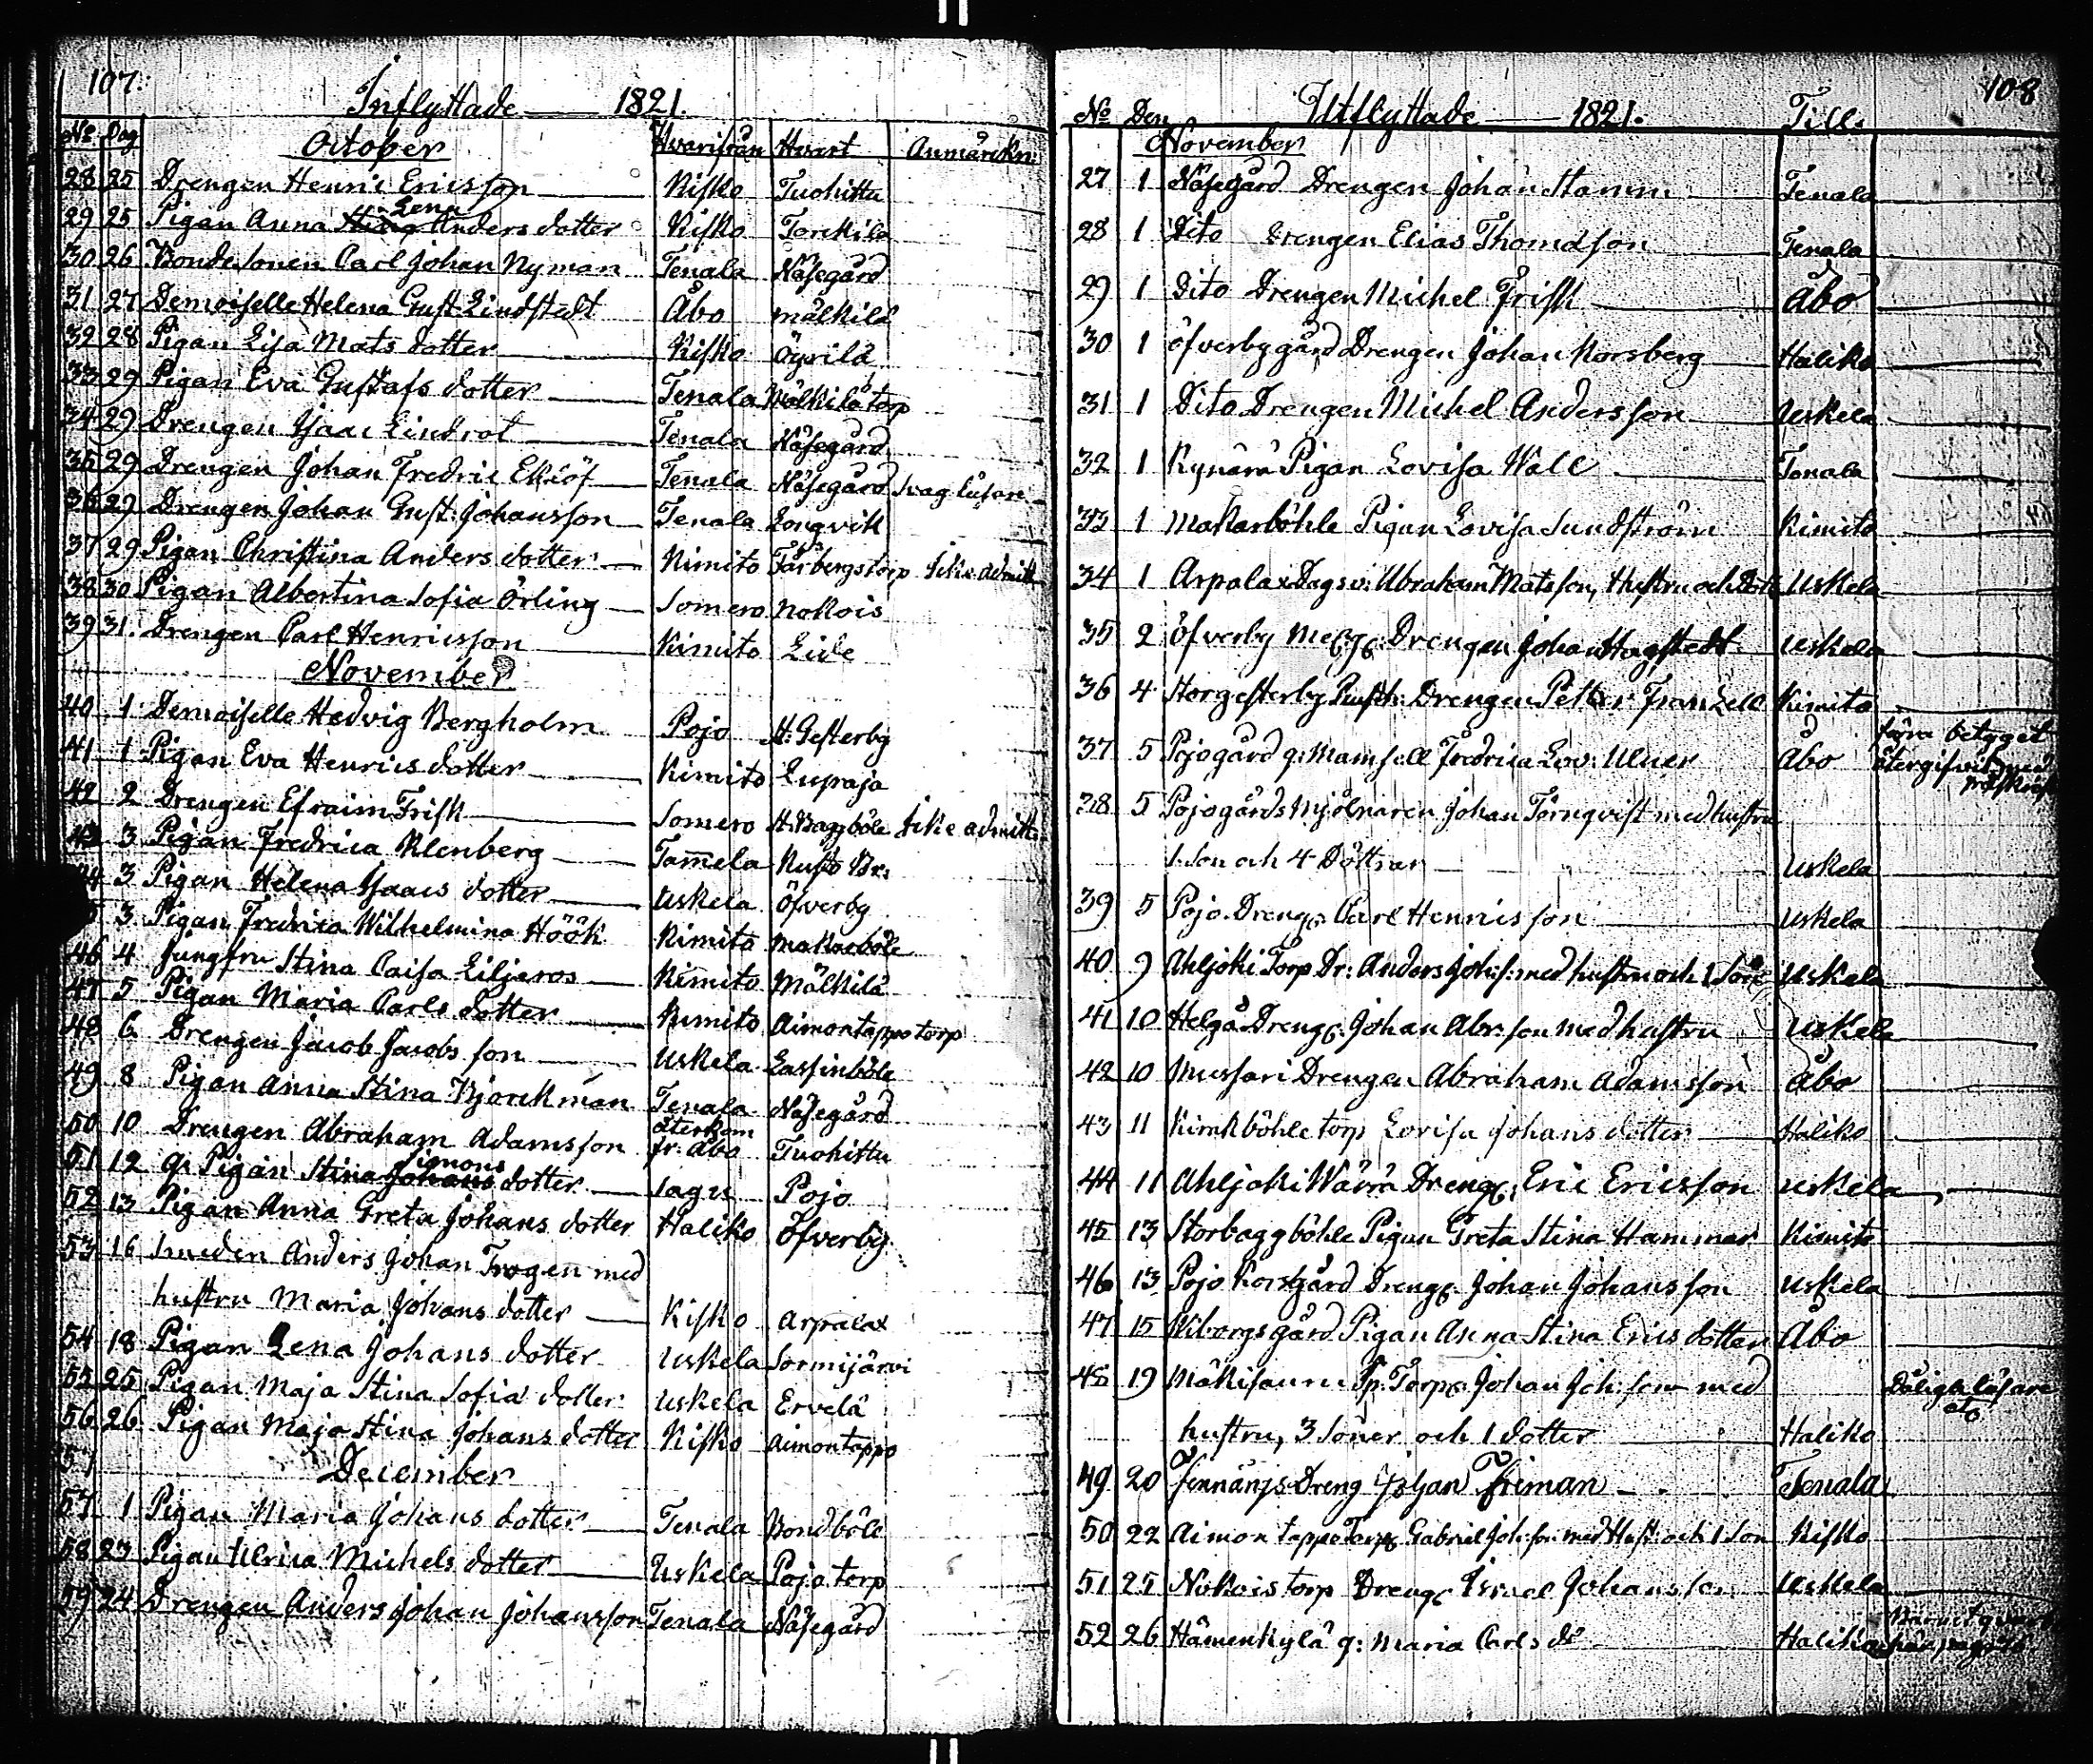 107.
Inflyttade 1821.
No Dag October Hvarifrån Hvart Anmärckn:
28 25 Drengen Henric Ericsson Kisko Tuohittu
29 25 Pigan Anna Lena Anders dotter Kisko Torckila
30 26 Bondesonen Carl Johan Nyman Tenala Näsegård
31 27 Demoiselle Helena Gust. Lindstedt Åbo Mälkilä
32 28 Pigan Lisa Mats dotter Kisko
33 29 Pigan Eva Gustafs dotter Tenala Mälkilä torp
34 29 Drengen Isaac Lindrot Tenala Näsegård
35 29 Drengen Johan Fredric Eklöf Tenala Näsegård svag läsare
36 29 Drengen Johan Gust: Johansson Tenala Longvik
37 29 Pigan Christina Anders dotter Kimito Tårbergstorp icke admitt
38 30 Pigan Albertina Sofia Örling Somero Nokois
39 31. Drengen Carl Henricsson Kimito Lide
November
40 1 Demoiselle Hedvig Bergholm Pojo St: Gesterby
41 1 Pigan Eva Henrics dotter Kimito Lupaja
42 2 Drengen Efraim Frisk Somero St: Baggböle icke admitt:
43 3 Pigan Fredrica Klenberg Tammela Kusto Br:
44 3 Pigan Helena Isaacs dotter Uskela Öfverby
45 3 Pigan Fredrica Wilhelmina Höök Kimito Makarböle
46 4 Jungfru Stina Caisa Liljeros Kimito Mälkilä
47 5 Pigan Maria Carls dotter Kimito Aimontappo torp
48 6 Drengen Jacob Jacobs son Uskela Lassinböle
49 8 Pigan Anna Stina Björckman Tenala Näsegård
50 10 Drengen Abraham Adamsson återkom fr. Åbo Tuohittu
51 12 q: Pigan Stina Johans Simons dotter Sagu Pojo
52 13 Pigan Anna Greta Johans dotter Haliko Öfverby
53 16 Smeden Anders Johan Trogen med
hustru Maria Johans dotter Kisko Arpalax
54 18 Pigan Lena Johans dotter Uskela Sormijärvi
55 25 Pigan Maja Stina Sofia dotter Uskela Ervelä
56 26 Pigan Maja Stina Johans dotter Kisko Aimontappo
57
December
57 1 Pigan Maria Johans dotter Tenala Bondböle
58 23 Pigan Ulrica Michels dotter Uskela Pojo torp
59 24 Drengen Anders Johan Johansson Tenala Näsegård
108
No Den Utflyttade 1821. Till.
November
27 1 Näsegård Drengen Johan Stamm Tenala
28 1 Dito Drengen Elias Thomasson Tenala
29 1 Dito Drengen Michel Frisk Åbo
30 1 Öfverbygård Drengen Johan Korsberg Haliko
31 1 Dito Drengen Michel Andersson Uskela
32 1 Kynärä Pigan Lovisa Wall Tenala
33 1 Makarböhle Pigan Lovisa Sundström Kimito
34 1 Arpalax Dagsv: Abraham Matsson, Hustru och Uskela
35 2 Öfverby Drengen Johan Hagstedt Uskela
36 4 Storgesterby Rusth: Drengen Petter Franzell Kimito
37 5 Pojogård q: Mamsell Fredrica Lov: Ulner Åbo förra betyget
återgifvit med
38 5 Pojogårds Mjölnaren Johan Törnqvist med hustru
1 Son och 4 Döttrar Uskela
39 5 Pojo Dreng: Carl Henricsson Uskela
40 9 Ahljoki Torp Dr: Anders Joh:s: med hustru och 1 Son Uskela
41 10 Helgå Dreng: Johan Abr: son med hustru Uskela
42 10 Mussari Drengen Abraham Adamsson Åbo
43 11 Kirrkböhle torp Lovisa Johans dotter Haliko
44 11 Ahljoki Wävrä Dreng: Eric Ericsson Uskela
45 13 Storbaggböhle Pigan Greta Stina Hammar Kimito
46 13 Pojo Korsgård Dreng: Johan Johansson Uskela
47 15 Wiborgsgård Pigan Anna Stina Erics dotter Åbo
48 19 Mäkisauru Sp: Torp: Johan Joh:son med Dåliga läsare
hustru, 3 Söner och 1 dotter Haliko
49 20 Fennängs Dreng Johan Friman Tenala
50 22 Aimontappo Torp: Gabriel Joh:son med Hust: och 1 Son Kisko
51 25 Nokois torp Dreng: Israel Johansson Uskela
52 26 Hämenkylä q: Maria Carls dr Haliko